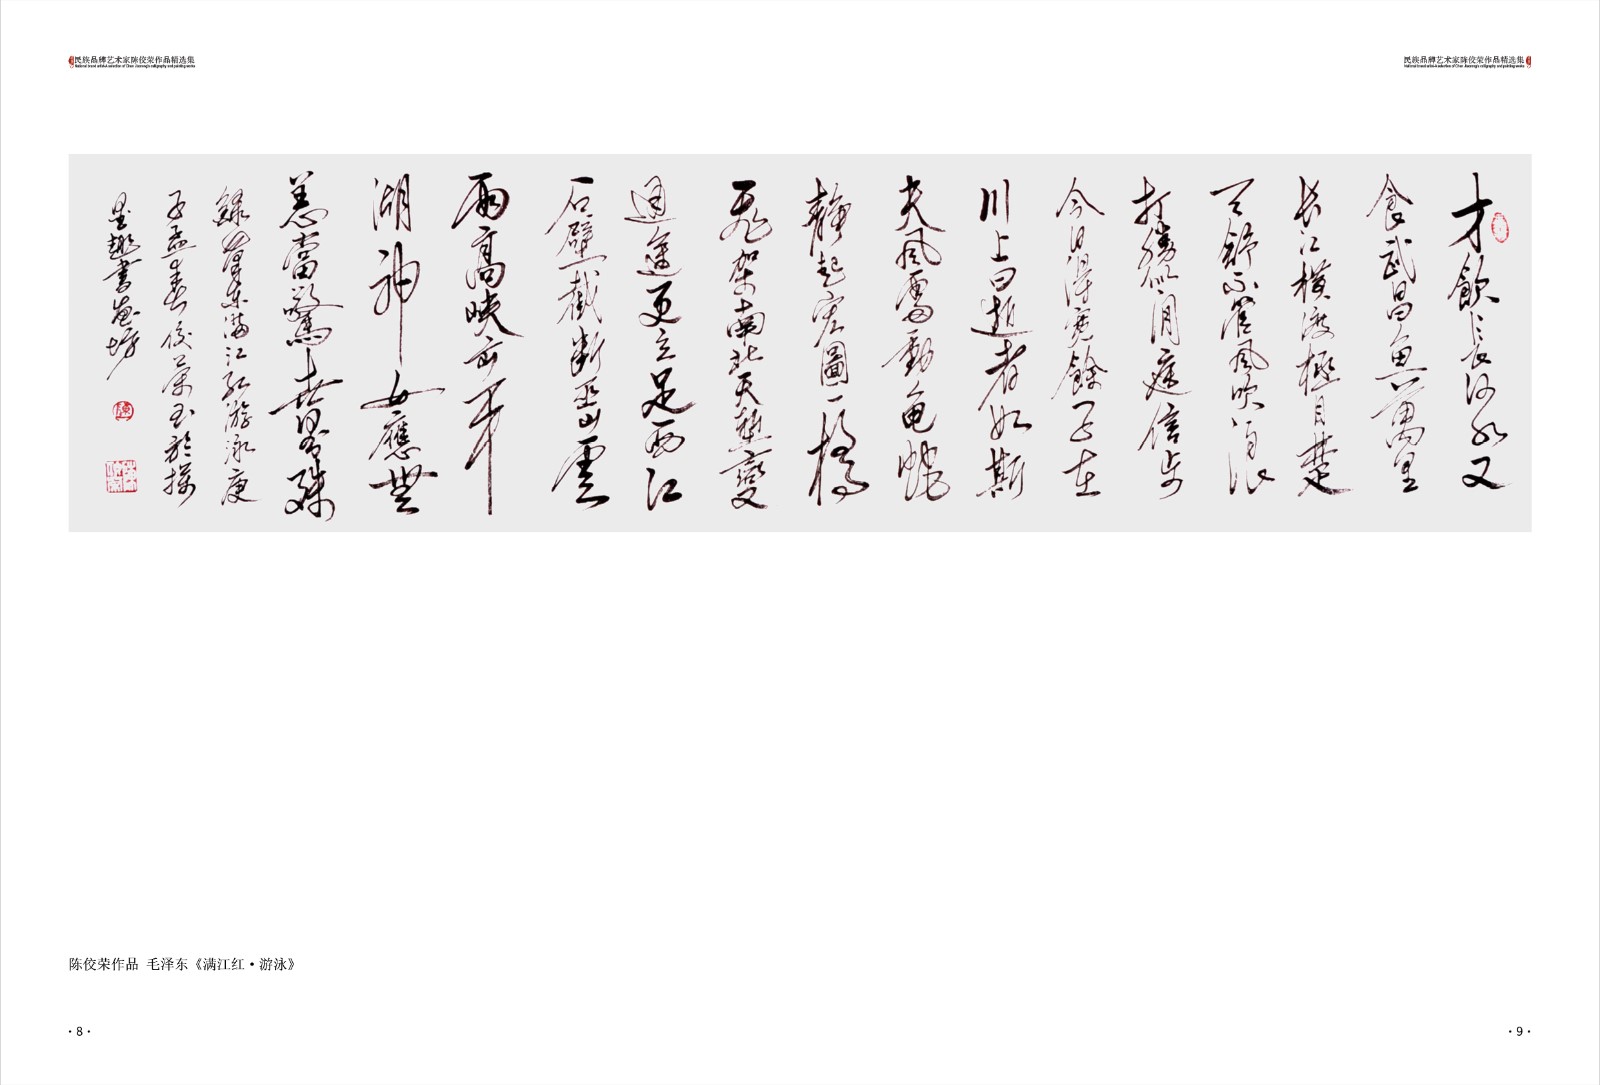 民族品牌艺术家陈佼荣作品精选集
National brand artist-A selection of Chen Jiaorong's calligraphy and painting works
民族品牌艺术家陈佼荣作品精选集
National brand artist-A selection of Chen Jiaorong's calligraphy and painting works
才飲長沙水又
食武昌魚萬里
长江横渡極目楚
天舒不管風吹浪
打勝似閒庭信步
今日得寬餘子在
川上曰逝者如斯
夫風雷動龟蛇
静起宏圖一橋
飛架南北天塹變
通途更立足西江
石壁截斷巫山雲
雨高峡出平
湖神女應無
恙當驚世界殊
録澤東滿江紅游泳庚
子孟春佼榮书於
墨趣書畫坊
陈佼荣作品 毛泽东《满江红·游泳》
·8·
·9·